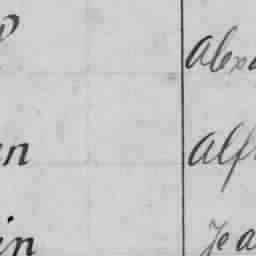 Alexa
en Alf
in Jea